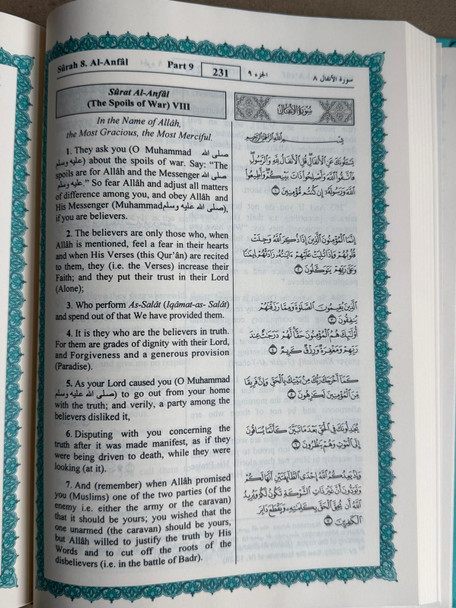 Sûrah 8. Al-Anfâl
Part 9
231
الجزء ٩
سورة الأنفال ٨
Sûrat Al-Anfâl
(The Spoils of War) VIII
In the Name of Allâh,
the Most Gracious, the Most Merciful.
1. They ask you (O Muhammad صلى الله
عليه وسلم) about the spoils of war. Say: "The
spoils are for Allâh and the Messenger صلى الله
عليه وسلم." So fear Allâh and adjust all matters
of difference among you, and obey Allâh and
His Messenger (Muhammad صلى الله عليه وسلم),
if you are believers.
2. The believers are only those who, when
Allâh is mentioned, feel a fear in their hearts
and when His Verses (this Qur'ân) are recited
to them, they (i.e. the Verses) increase their
Faith; and they put their trust in their Lord
(Alone);
3. Who perform As-Salât (Iqâmat-as- Salât)
and spend out of that We have provided them.
4. It is they who are the believers in truth.
For them are grades of dignity with their Lord,
and Forgiveness and a generous provision
(Paradise).
5. As your Lord caused you (O Muhammad
صلى الله عليه وسلم) to go out from your home
with the truth; and verily, a party among the
believers disliked it,
6. Disputing with you concerning the
truth after it was made manifest, as if they
were being driven to death, while they were
looking (at it).
7. And (remember) when Allâh promised
you (Muslims) one of the two parties (of the
enemy i.e. either the army or the caravan)
that it should be yours; you wished that the
one unarmed (the caravan) should be yours,
but Allâh willed to justify the truth by His
Words and to cut off the roots of the
disbelievers (i.e. in the battle of Badr).
سُورَةُ الأَنْفَالِ
بِسْمِ اللَّهِ الرَّحْمَٰنِ الرَّحِيمِ
يَسْـَٔلُونَكَ عَنِ الْأَنفَالِ قُلِ الْأَنفَالُ لِلَّهِ وَالرَّسُولِ
فَاتَّقُوا اللَّهَ وَأَصْلِحُوا ذَاتَ بَيْنِكُمْ وَأَطِيعُوا
اللَّهَ وَرَسُولَهُ إِن كُنتُم مُّؤْمِنِينَ ١
إِنَّمَا الْمُؤْمِنُونَ الَّذِينَ إِذَا ذُكِرَ اللَّهُ وَجِلَتْ
قُلُوبُهُمْ وَإِذَا تُلِيَتْ عَلَيْهِمْ ءَايَـٰتُهُ زَادَتْهُمْ إِيمَـٰنًا
وَعَلَىٰ رَبِّهِمْ يَتَوَكَّلُونَ ٢
الَّذِينَ يُقِيمُونَ الصَّلَوٰةَ وَمِمَّا رَزَقْنَـٰهُمْ
يُنفِقُونَ ٣
أُولَـٰئِكَ هُمُ الْمُؤْمِنُونَ حَقًّا لَّهُمْ دَرَجَـٰتٌ عِندَ
رَبِّهِمْ وَمَغْفِرَةٌ وَرِزْقٌ كَرِيمٌ ٤
كَمَا أَخْرَجَكَ رَبُّكَ مِن بَيْتِكَ بِالْحَقِّ وَإِنَّ فَرِيقًا
مِّنَ الْمُؤْمِنِينَ لَكَـٰرِهُونَ ٥
يُجَـٰدِلُونَكَ فِي الْحَقِّ بَعْدَ مَا تَبَيَّنَ كَأَنَّمَا يُسَاقُونَ
إِلَى الْمَوْتِ وَهُمْ يَنظُرُونَ ٦
وَإِذْ يَعِدُكُمُ اللَّهُ إِحْدَى الطَّائِفَتَيْنِ أَنَّهَا لَكُمْ
وَتَوَدُّونَ أَنَّ غَيْرَ ذَاتِ الشَّوْكَةِ تَكُونُ لَكُمْ وَيُرِيدُ
اللَّهُ أَن يُحِقَّ الْحَقَّ بِكَلِمَـٰتِهِ وَيَقْطَعَ دَابِرَ
الْكَـٰفِرِينَ ٧